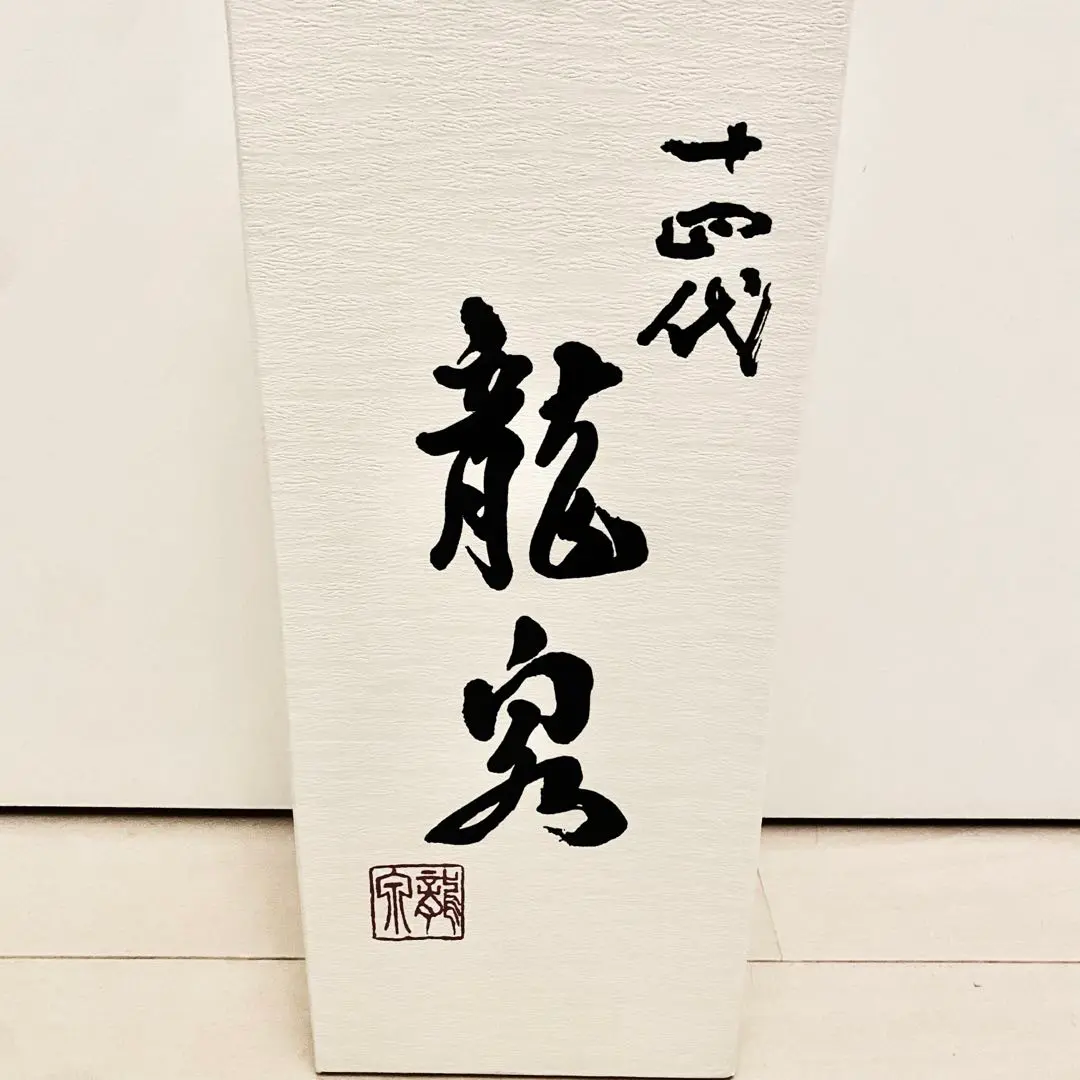 十四代
龍泉
龍泉